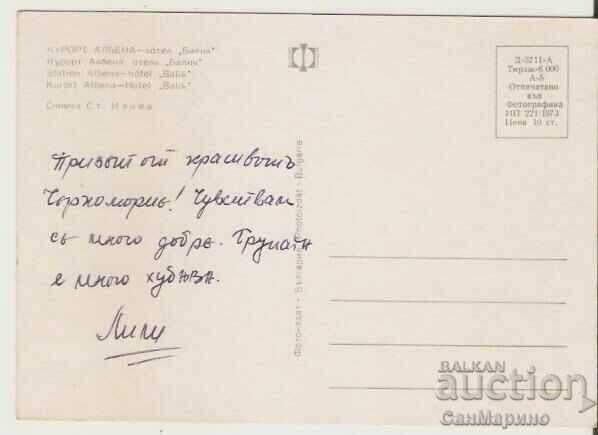 КУРОРТ АЛБЕНА—хотел „Балик“
Курорт Албена отель „Балик“
Station Albena—hôtel „Balik“
Kurort Albena—Hotel „Balik“
Снимка Ст. Ненов
Д-3711-А
Тираж 6 000
А-5
Отпечатано
във
Фотографика
ИП 221/1973
Цена 10 ст.
Привет от красивото
Черноморие! Чувствам
се много добре. Групата
е много хубава.
Лили
Фотоиздат - България Photoizdat - Bulgaria
BALKAN
auction
СанМарино